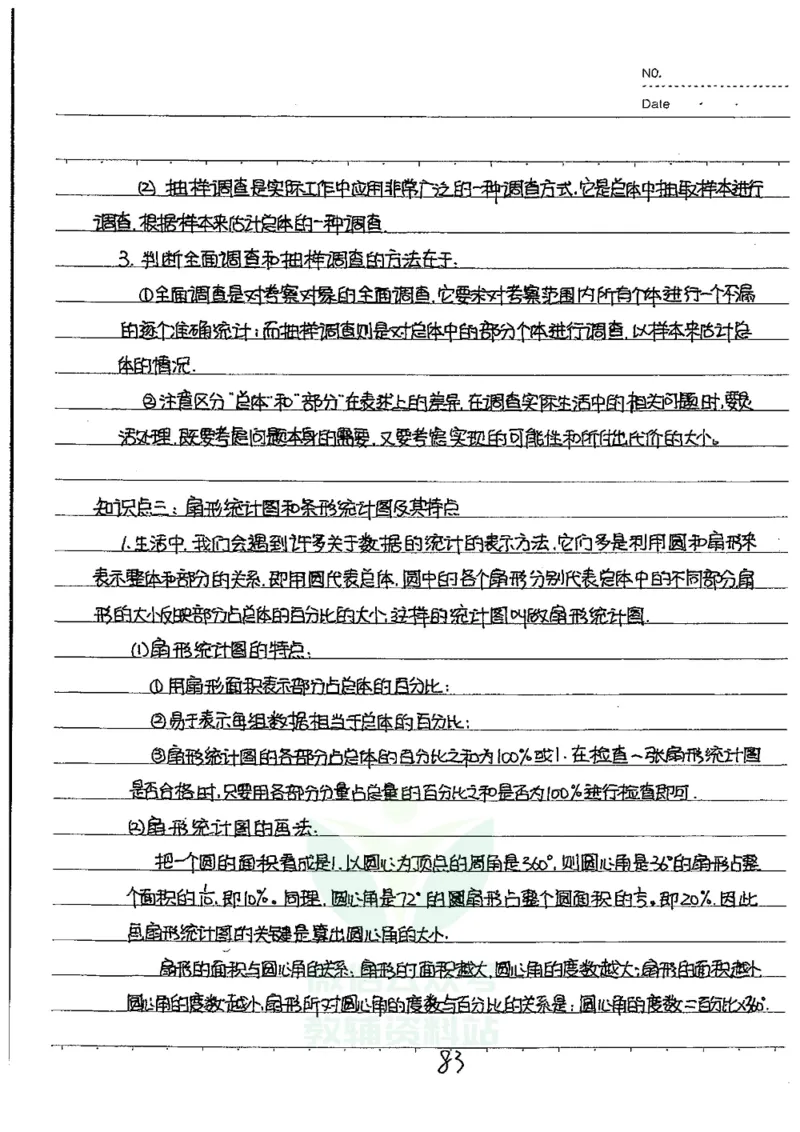 NO.
Date
(2) 抽样调查是实际工作中应用非常广泛的一种调查方式,它是总体中抽取样本进行
调查,根据样本来估计总体的一种调查.
3. 判断全面调查和抽样调查的方法在于:
①全面调查是对考察对象的全面调查,它要求对考察范围内所有个体进行一个不漏
的逐个准确统计;而抽样调查则是对总体中的部分个体进行调查,以样本来估计总
体的情况.
②注意区分"总体"和"部分"在表述上的差异.在调查实际生活中的相关问题时,要灵
活处理,既要考虑问题本身的需要,又要考虑实现的可能性和所付出代价的大小。
知识点三:扇形统计图和条形统计图及其特点
1.生活中,我们会遇到许多关于数据的统计的表示方法,它们多是利用圆和扇形来
表示整体和部分的关系,即用圆代表总体,圆中的各个扇形分别代表总体中的不同部分扇
形的大小反映部分占总体的百分比的大小,这样的统计图叫做扇形统计图.
(1)扇形统计图的特点:
①用扇形面积表示部分占总体的百分比;
②易于表示每组数据相当于总体的百分比;
③扇形统计图的各部分占总体的百分比之和为100%或1.在检查一张扇形统计图
是否合格时,只要用各部分分量占总量的百分比之和是否为100%进行检查即可.
(2)扇形统计图的画法:
把一个圆的面积看成是1,以圆心为顶点的周角是360°,则圆心角是36°的扇形占整
个面积的1/10,即10%。同理,圆心角是72°的圆扇形占整个圆面积的1/5。即20%.因此
画扇形统计图的关键是算出圆心角的大小.
扇形的面积与圆心角的关系:扇形的面积越大,圆心角的度数越大;扇形的面积越小
圆心角的度数越小,扇形所对圆心角的度数与百分比的关系是:圆心角的度数=百分比×360°.
微信公众号
教辅资料站
83